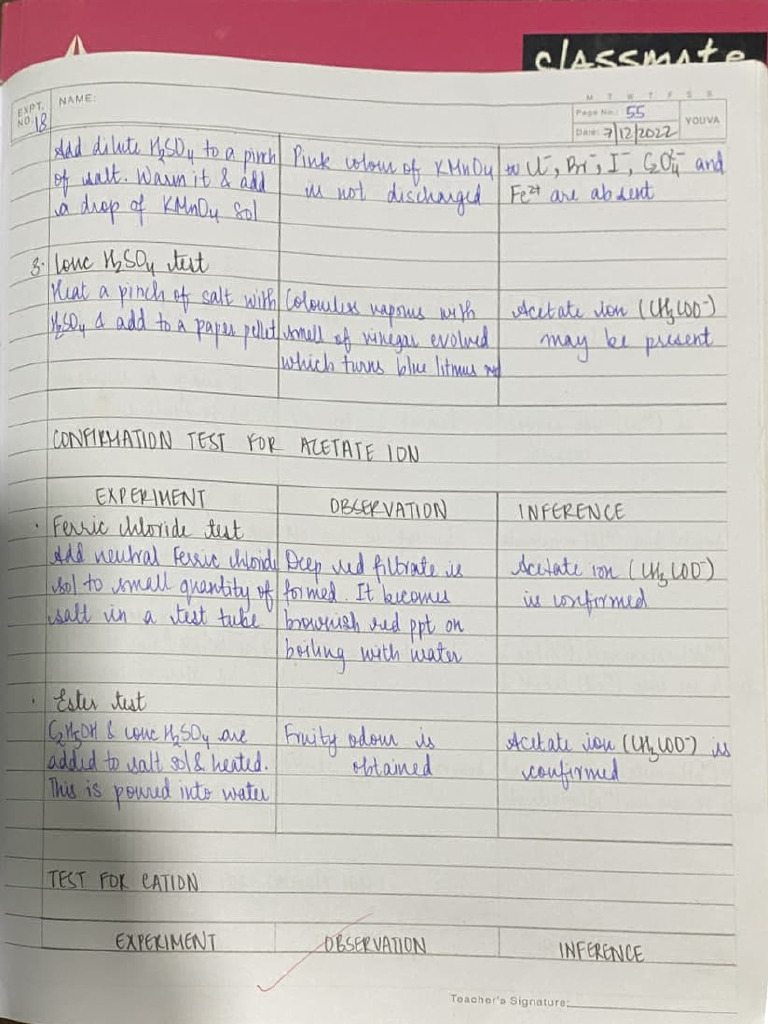 classmate
EXPT. NO. 18
NAME:
M T W T F S S
Page No.: 55
Date: 7/12/2022
YOUVA
Add dilute H₂SO₄ to a pinch
of salt. Warm it & add
a drop of KMnO₄ sol
Pink colour of KMnO₄
is not discharged
Cl⁻, Br⁻, I⁻, C₂O₄²⁻ and
Fe²⁺ are absent
3. Conc H₂SO₄ test
Heat a pinch of salt with
H₂SO₄ & add to a paper pellet
Colourless vapous with
smell of vinegar evolved
which turns blue litmus red
Acetate ion (CH₃COO⁻)
may be present
CONFIRMATION TEST FOR ACETATE ION
EXPERIMENT
OBSERVATION
INFERENCE
· Ferric chloride test
Add neutral Ferric chloride
sol to small quantity of
salt in a test tube
Deep red filtrate is
formed. It becomes
brownish red ppt on
boiling with water
Acetate ion (CH₃COO⁻)
is confirmed
· Ester test
C₂H₅OH & conc H₂SO₄ are
added to salt sol & heated.
This is poured into water
Fruity odour is
obtained
Acetate ion (CH₃COO⁻) is
confirmed
TEST FOR CATION
EXPERIMENT
OBSERVATION
INFERENCE
Teacher's Signature: